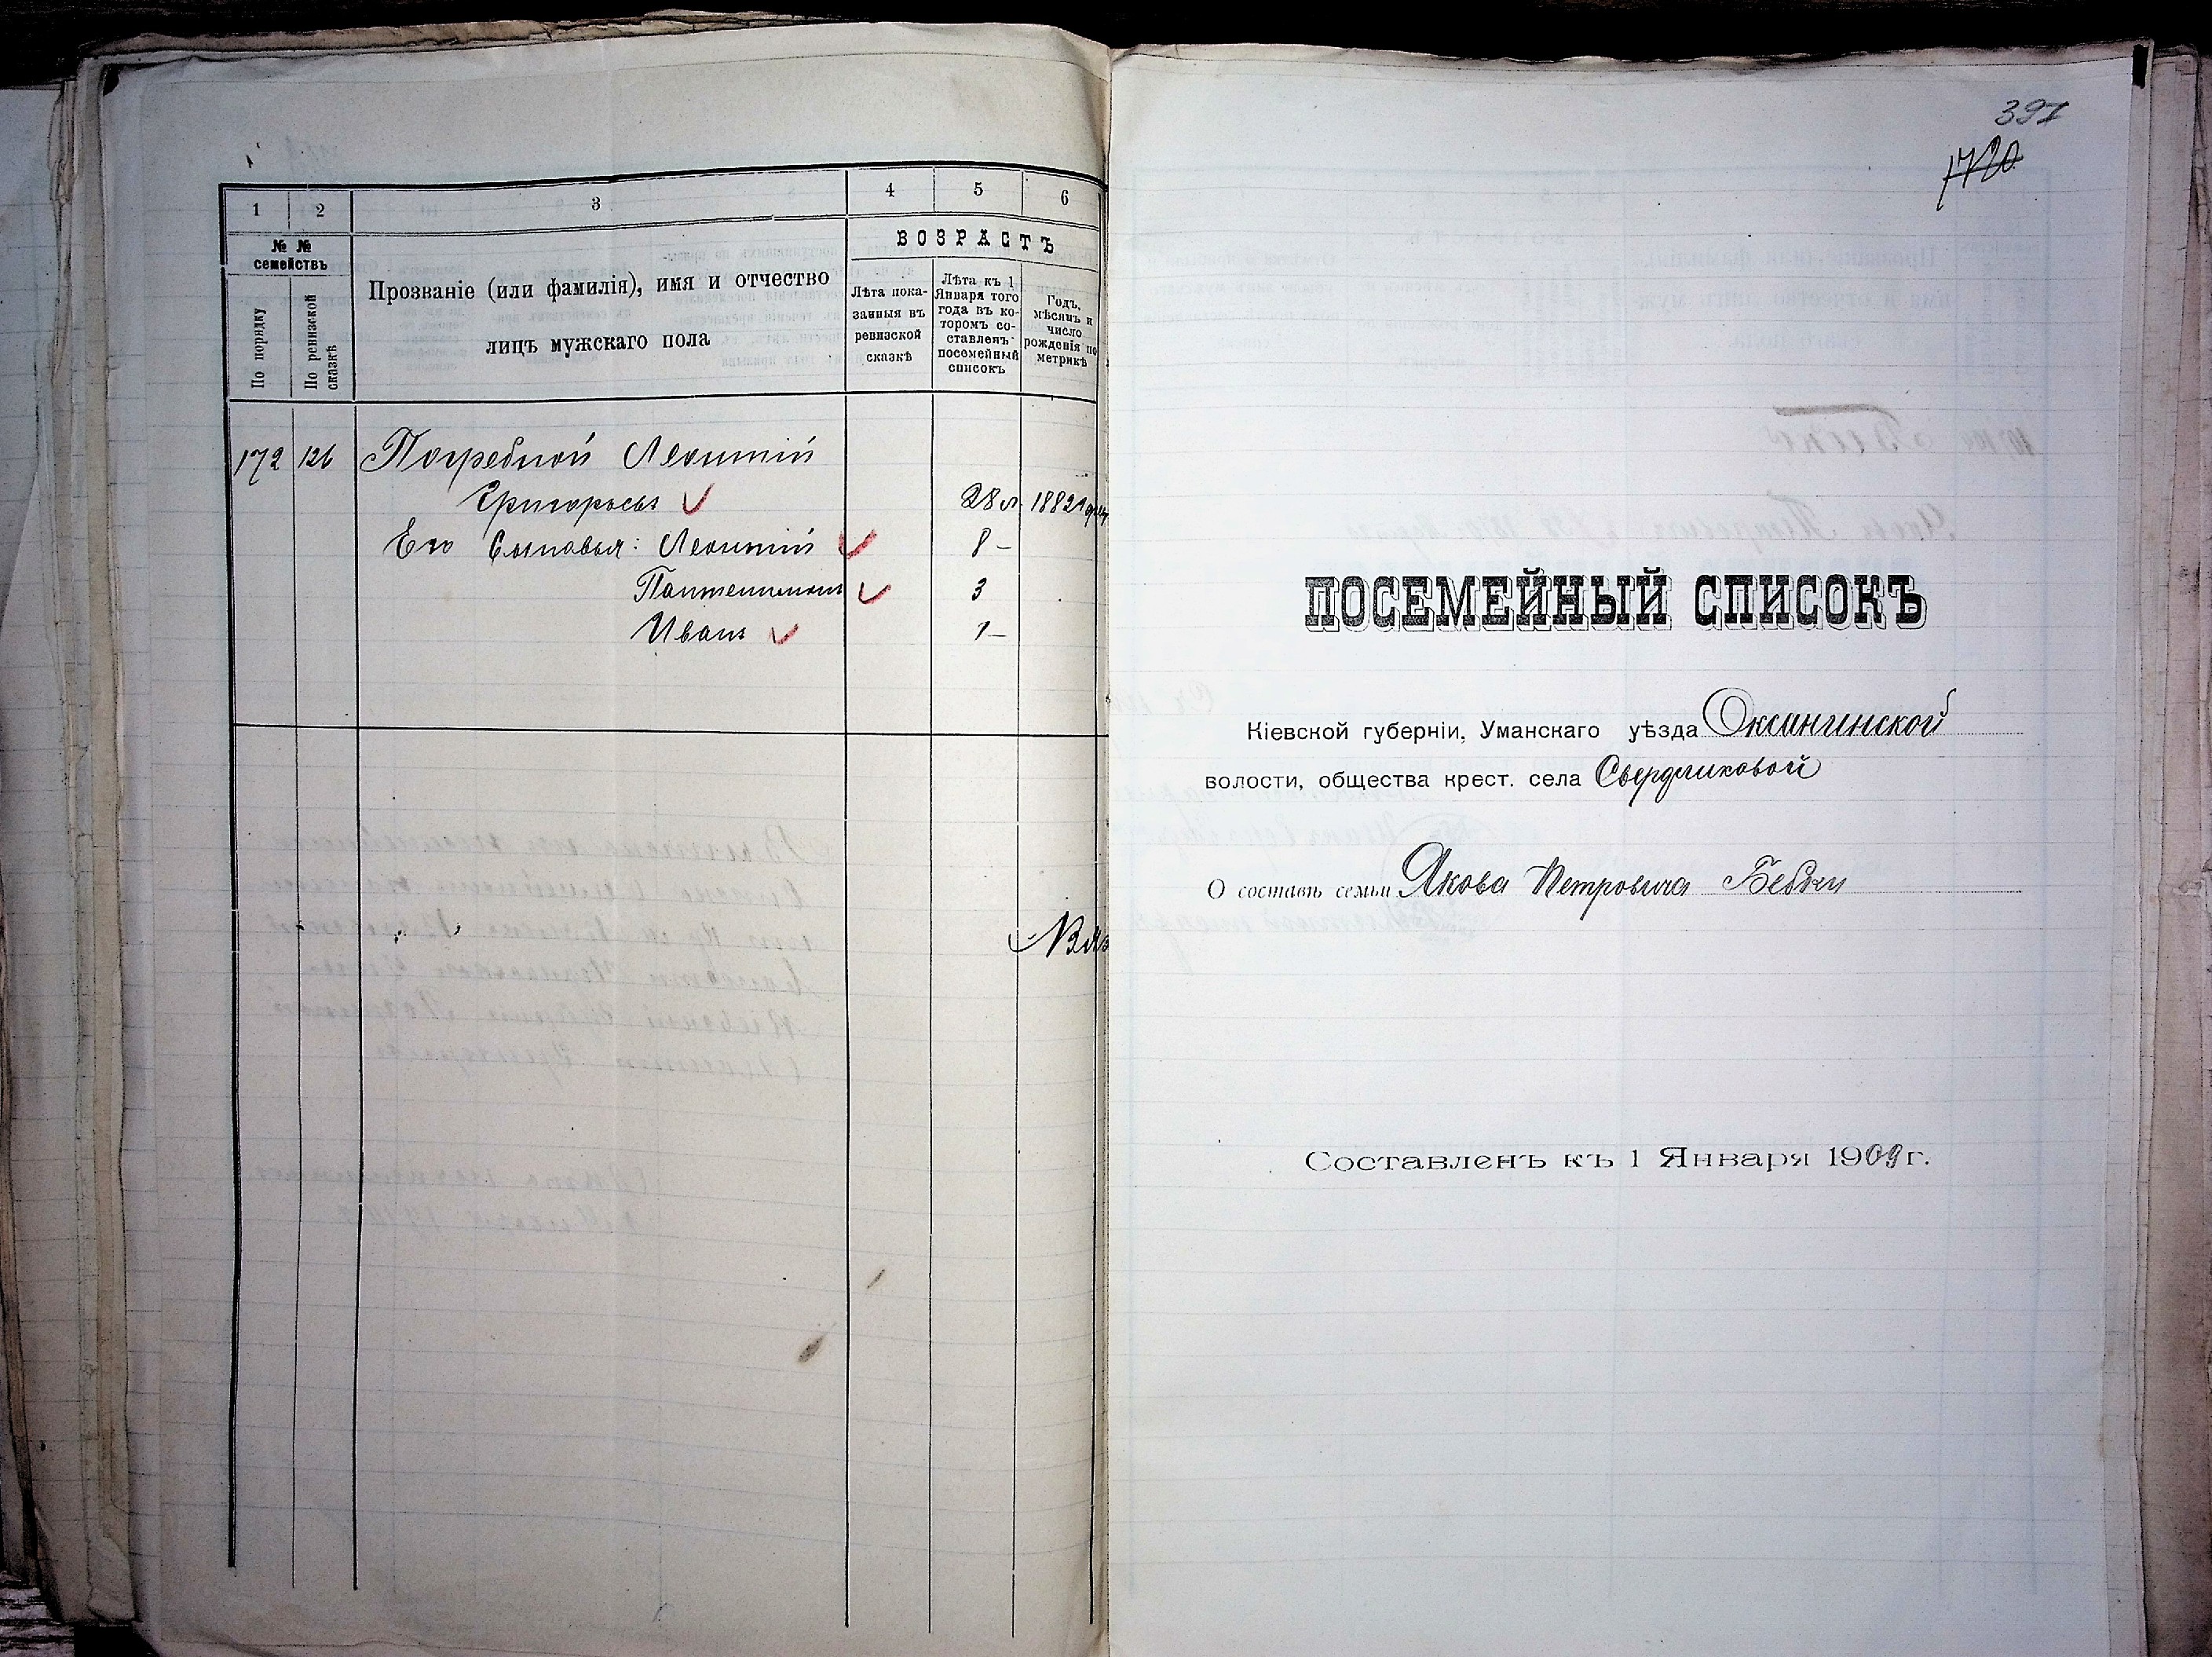 1 2 3 4 5 6
№ №
семействъ
По порядку
По ревизской сказкѣ
Прозваніе (или фамилія), имя и отчество
лицъ мужскаго пола
ВОЗРАСТЪ
Лѣта пока-
занныя въ
ревизской
сказкѣ
Лѣта къ 1
Января того
года въ ко-
торомъ со-
ставленъ
посемейный
списокъ
Годъ,
мѣсяцъ и
число
рожденія по
метрикѣ
172 126 Погребной Леонтій
Григорьевъ 28 л. 1882
Его Сыновья: Леонтій 8 —
Пантелимонъ 3
Иванъ 1 —
391
1720
ПОСЕМЕЙНЫЙ СПИСОКЪ
Кіевской губерніи, Уманскаго уѣзда Оксанинской
волости, общества крест. села Свердликовой
О составѣ семьи Якова Петровича
Составленъ къ 1 Января 1909 г.